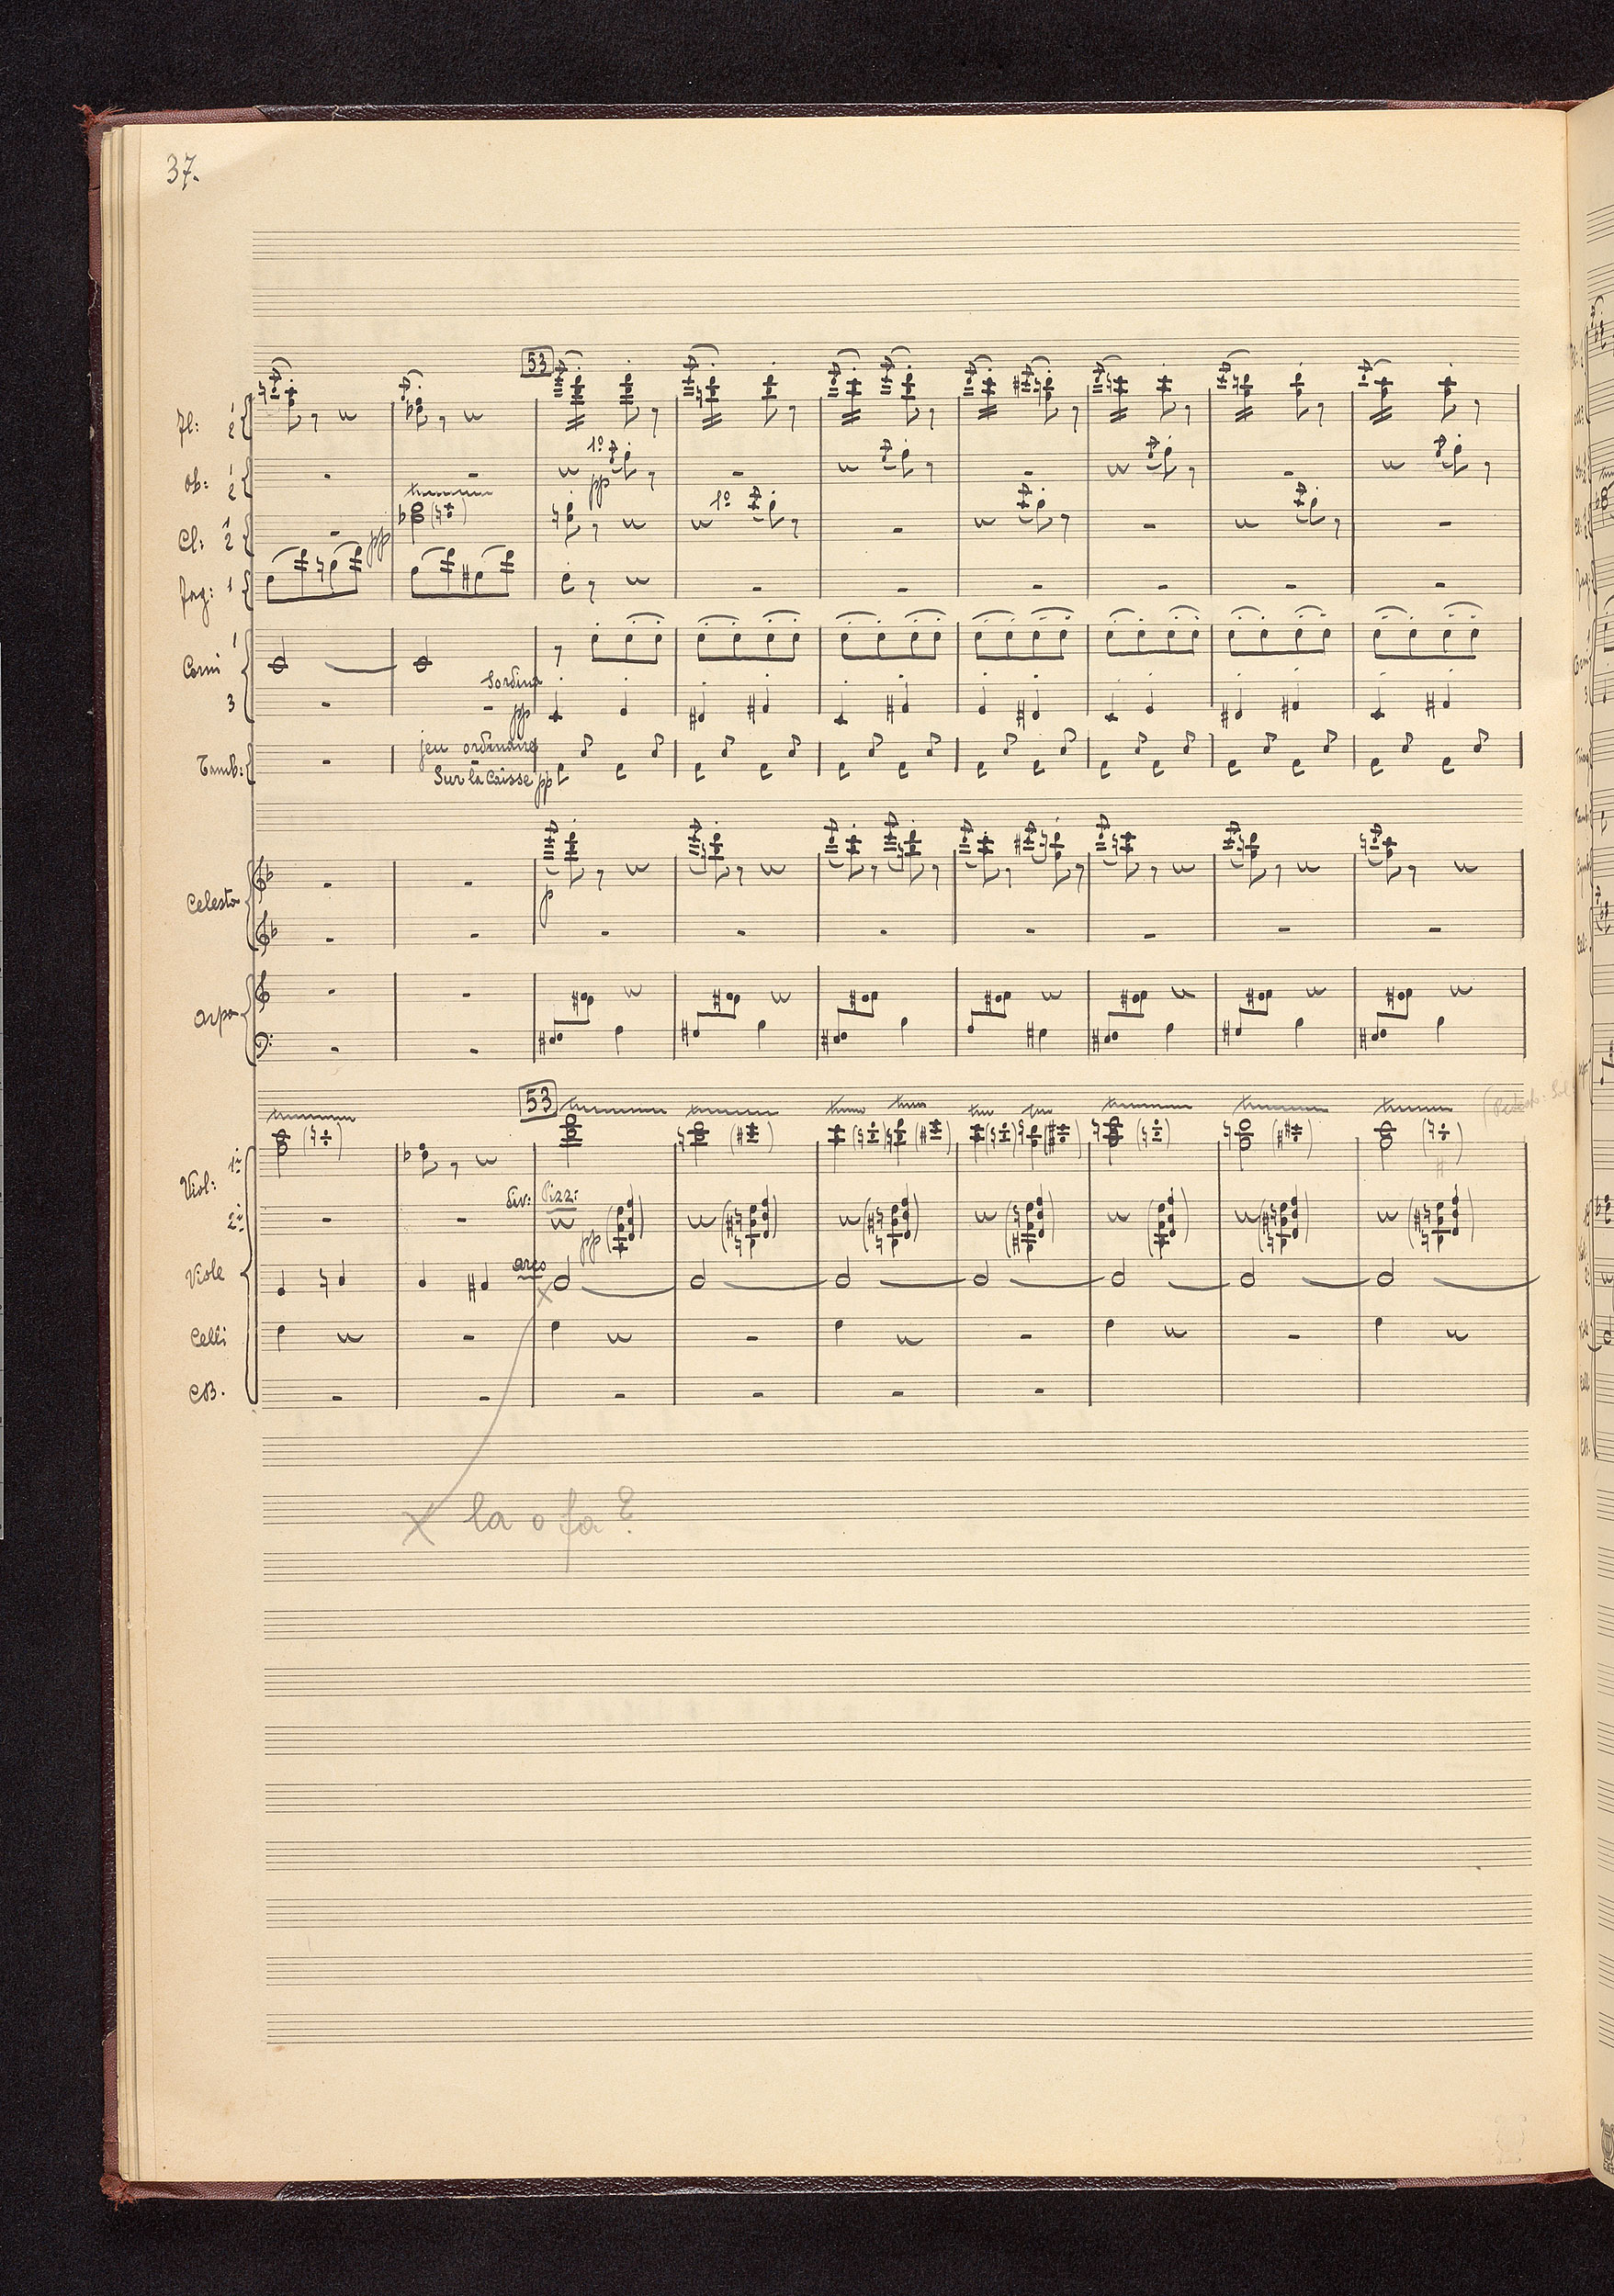 37.
53
Fl: 1 2
1º
Ob: 1 2
pp
1º
Cl: 1 2
pp
Fag: 1
Corni 1
Sordina
3
pp
jeu ordinaire
Tamb:
Sur la Caisse pp
Celesta
p
Arpa
53
Viol: 1i
div: Pizz:
2i
pp
arco
Viole
Celli
CB.
X la o fa?